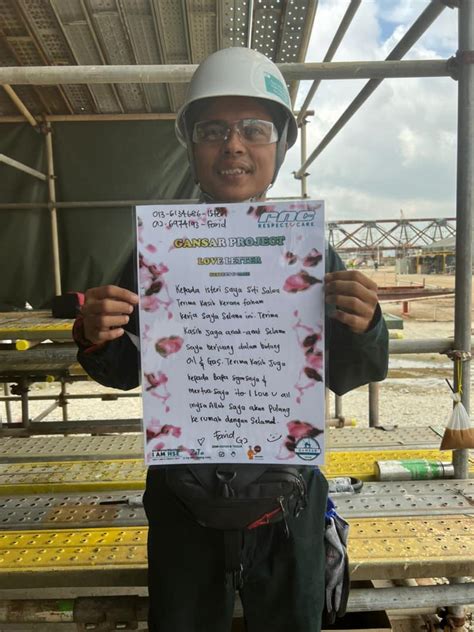 013-6134686-Isteri
Farid
RNC
RESPECT & CARE
GANSAR PROJECT
LOVE LETTER
Kepada isteri saya Siti Salwa
Terima Kasih Kerana faham
Kerja Saya Selama ini. Terima
Kasih Juga anak-anak Selama
Saya berjuang dalam bidang
Oil & Gas. Terima Kasih Juga
Kepada Bapa Saya &
Mertua Saya I Love U all
Insya Allah Saya akan Pulang
Ke rumah dengan Selamat.
Farid
I AM HSE